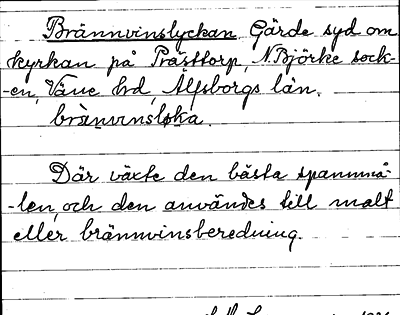 Brännvinslyckan, Gärde syd om
kyrkan på Prästtorp, N. Björke sock-
-en, Väne hd, Älfsborgs län.
brànvinsløka.
Där växte den bästa spannmå-
-len, och den användes till malt
eller brännvinsberedning.